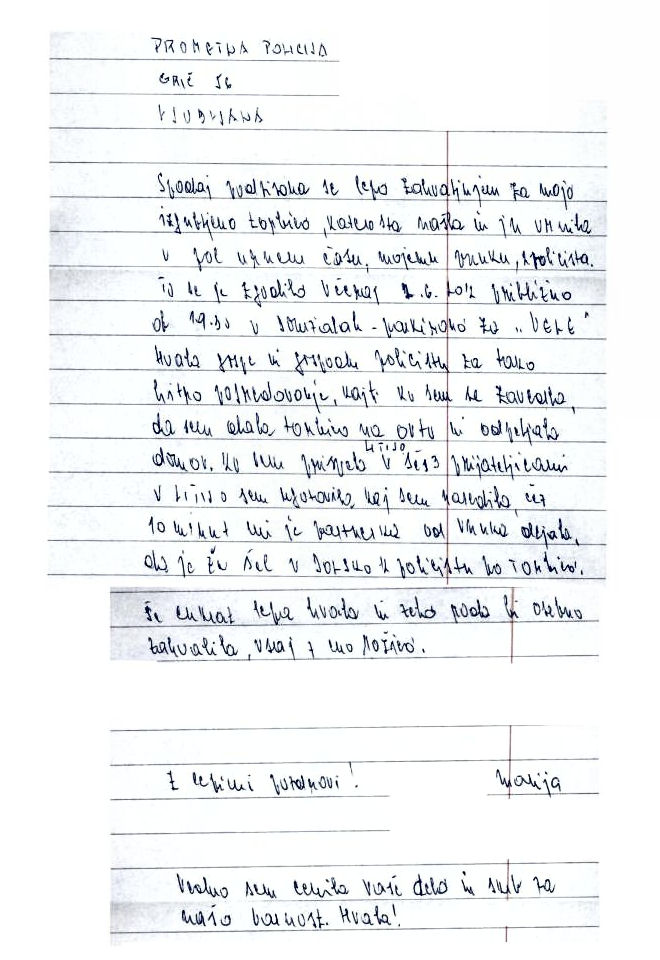 PROMETNA POLICIJA
GRIČ 56
LJUBLJANA
Spodaj podpisana se lepo zahvaljujem za mojo
izgubljeno torbico, katero sta našla in jo vrnila
v pol urnem času, mojemu vnuku, 2 policista.
To se je zgodilo včeraj 2.6. 2012 približno
ob 19.30 v Domžalah - parkirano za "VELE"
Hvala gospe in gospodu policistu za tako
hitro posredovanje, kajti ko sem se zavedla,
da sem dala torbico na avto in odpeljala
domov. Ko sem prispela v LITIJO s 3 prijateljicami
v Litijo sem ugotovila, kaj sem naredila, čez
10 minut mi je partnerka od vnuka dejala,
da je že šel v k policistu po torbico.
Še enkrat lepa hvala in zelo rada bi osebno
zahvalila, vsaj z eno rožico.
Z lepimi pozdravi! Marija
Vedno sem cenila vaše delo in skrb za
našo varnost. Hvala!